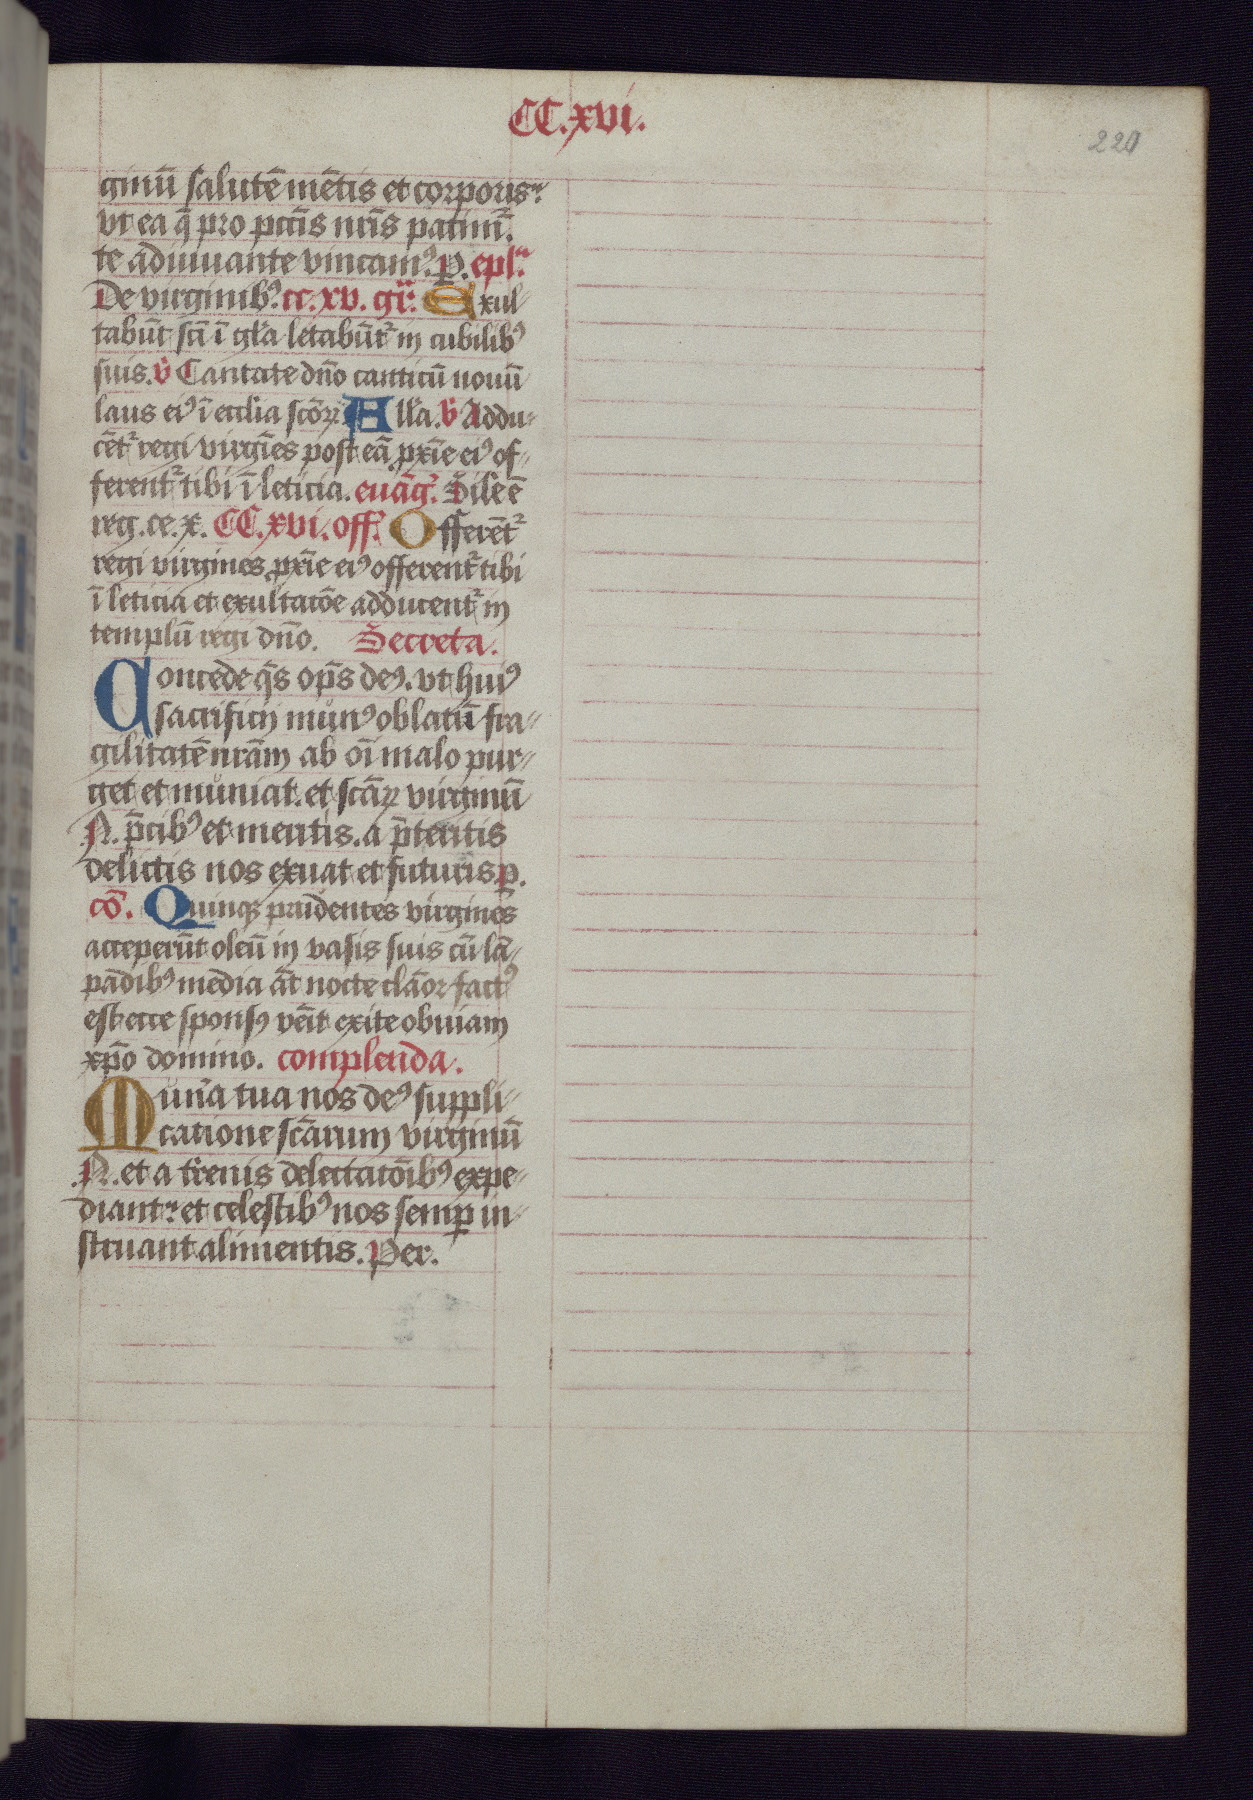 CC.xvi.
220
ginū salutē mētis et corporis
vt ea q̄ pro pctīs nrīs patim̄.
te adiuuante vincamꝰ. P. epl̄a
De virginibꝰ. cc.xv. gr̄. Exul
tabūt scī ī gl̄a letabūt᷑ in cubilibꝰ
suis. v̄ Cantate dn̄o canticū nouū
laus eiꝰ ī eccl̄ia scōꝝ All̄a. v̄ Addu-
cēt᷑ regi virgīes post eā pxīe eiꝰ of-
ferent᷑ tibi ī leticia. euāg. Sil̄e ē
reg. ce. x. CC.xvi. off. Offerēt᷑
regi virgines pxīe eiꝰ offerent᷑ tibi
ī leticia et exultatōe adducent᷑ in
templū regi dn̄o. Secreta.
Concede q̄s op̄s deꝰ. vt huiꝰ
sacrificij munꝰ oblatū fra-
gilitatē nrām ab oī malo pur-
get et muniat. et scāꝝ virginū
N. p̄cibꝰ et meritis. a p̄teritis
delictis nos exuat et futuris. p.
cō. Quinqꝫ prudentes virgines
acceperūt oleū in vasis suis cū lā-
padibꝰ media āt nocte clamor factꝰ
est ecce sponsꝰ venīt exite obuiam
xp̄o domino. complenda.
Mun̄a tua nos deꝰ suppli-
catione scārum virginū
N. et a t̄renis delectatōibꝰ expe-
diant. et celestibꝰ nos semꝑ in-
struant alimentis. Per.